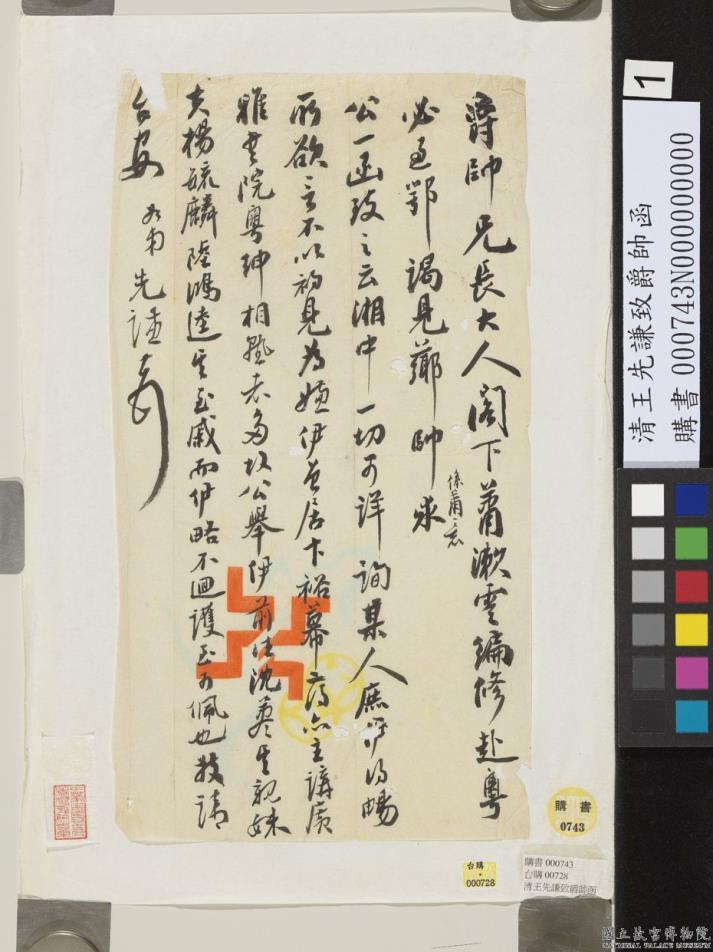 爵帥兄長大人閣下蕭漱雲編修赴粵
必過鄂謁見薌帥求
係蕭意
公一函致之云湘中一切可詳詢某人庶伊得暢
所欲言不以初見為嫌伊曾居卞裕幕府亦主講廣
雅書院粵紳相熟者多故公舉伊前往沈藎生親妹
夫楊毓麟陸鴻逵生至戚而伊略不迴護至可佩也敬請
台安
如弟先謙頓
1
清王先謙致爵帥函
購書 000743N000000000
購書
0743
台購
000728
購書 000743
台購 00728
清王先謙致爵帥函
國立故宮博物院
NATIONAL PALACE MUSEUM